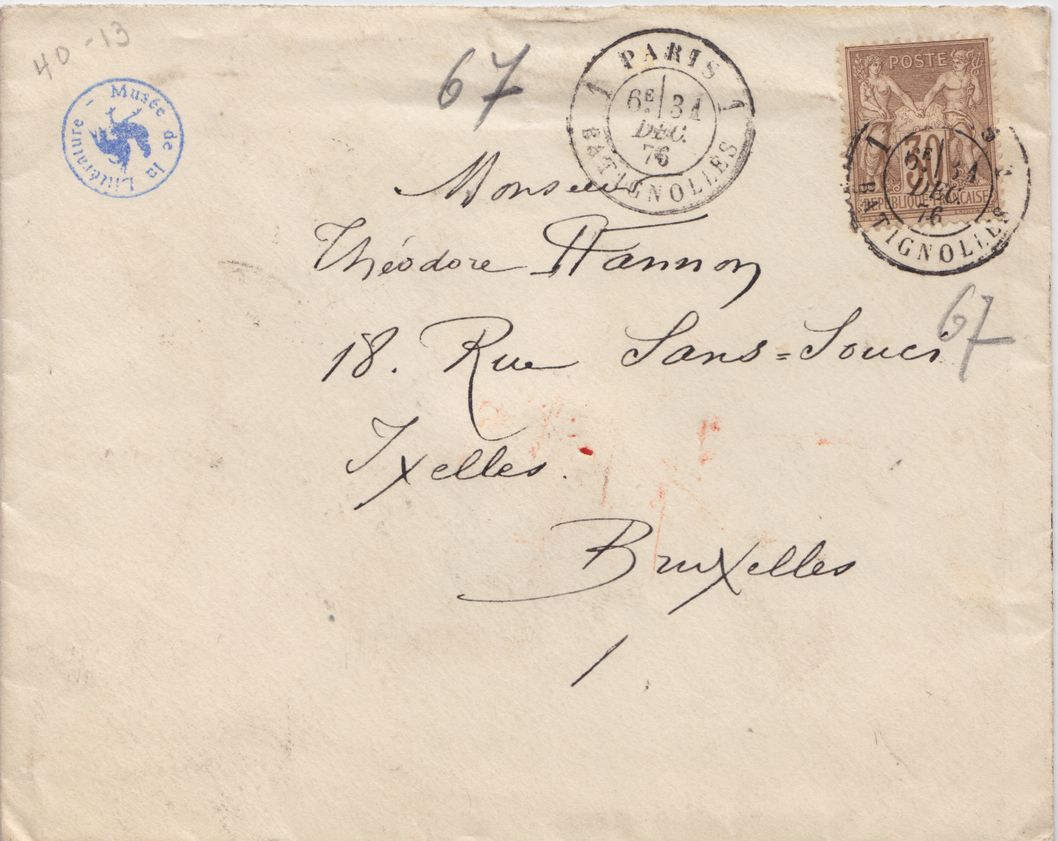 40-13
Musée de la Littérature -
67
PARIS
1 1
6E 31
DEC.
76
BATIGNOLLES
POSTE
30
REPUBLIQUE FRANCAISE
1
6E 31
DEC.
76
BATIGNOLLES
Monsieur
Théodore Hannon
18. Rue Sans=Souci
67
Ixelles.
Bruxelles